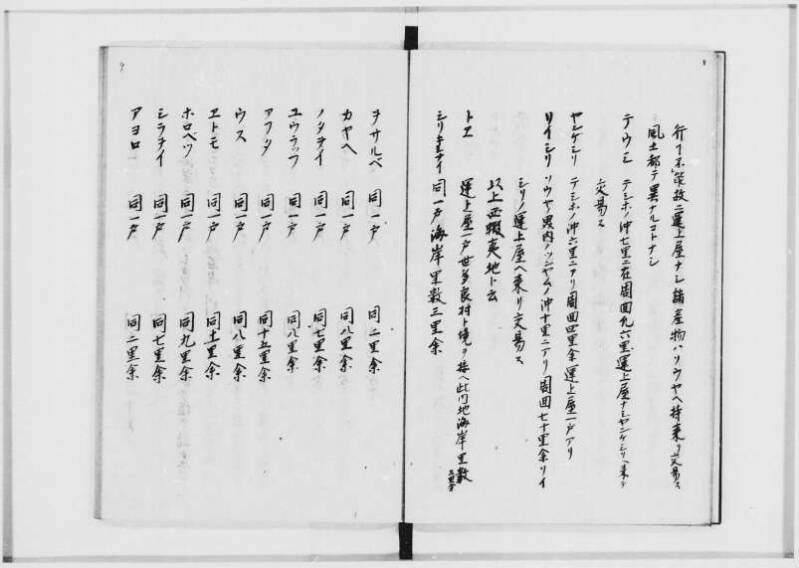 行テ不策故ニ運上屋ナシ諸産物ハソウヤヘ持来リ交易ス
風土都テ異ナルコトナシ
テウレ テシホノ沖七里ニ在周回凡六里運上屋ナシヤンゲシリヘ来テ
交易ス
ヤンゲシリ テシホノ沖六里ニアリ周回四里余運上屋一戸アリ
リイシリ ソウヤ場内ノツシヤムノ沖十里ニアリ周回七十里余リイ
シリノ運上屋ヘ来リ交易ス
以上西蝦夷地ト云
トエ 運上屋一戸世多良村ト境ヲ接ヘ此ノ地海岸里数
シリキシナイ 同一戸海岸里数三里余
ヲサルベ 同一戸 同二里余
カヤヘ 同一戸 同八里余
ノタヲイ 同一戸 同七里余
ユウラップ 同一戸 同八里余
アブタ 同一戸 同十五里余
ウス 同一戸 同八里余
エトモ 同一戸 同七里余
ホロベツ 同一戸 同九里余
シラヲイ 同一戸 同七里余
アヨロ 同一戸 同二里余